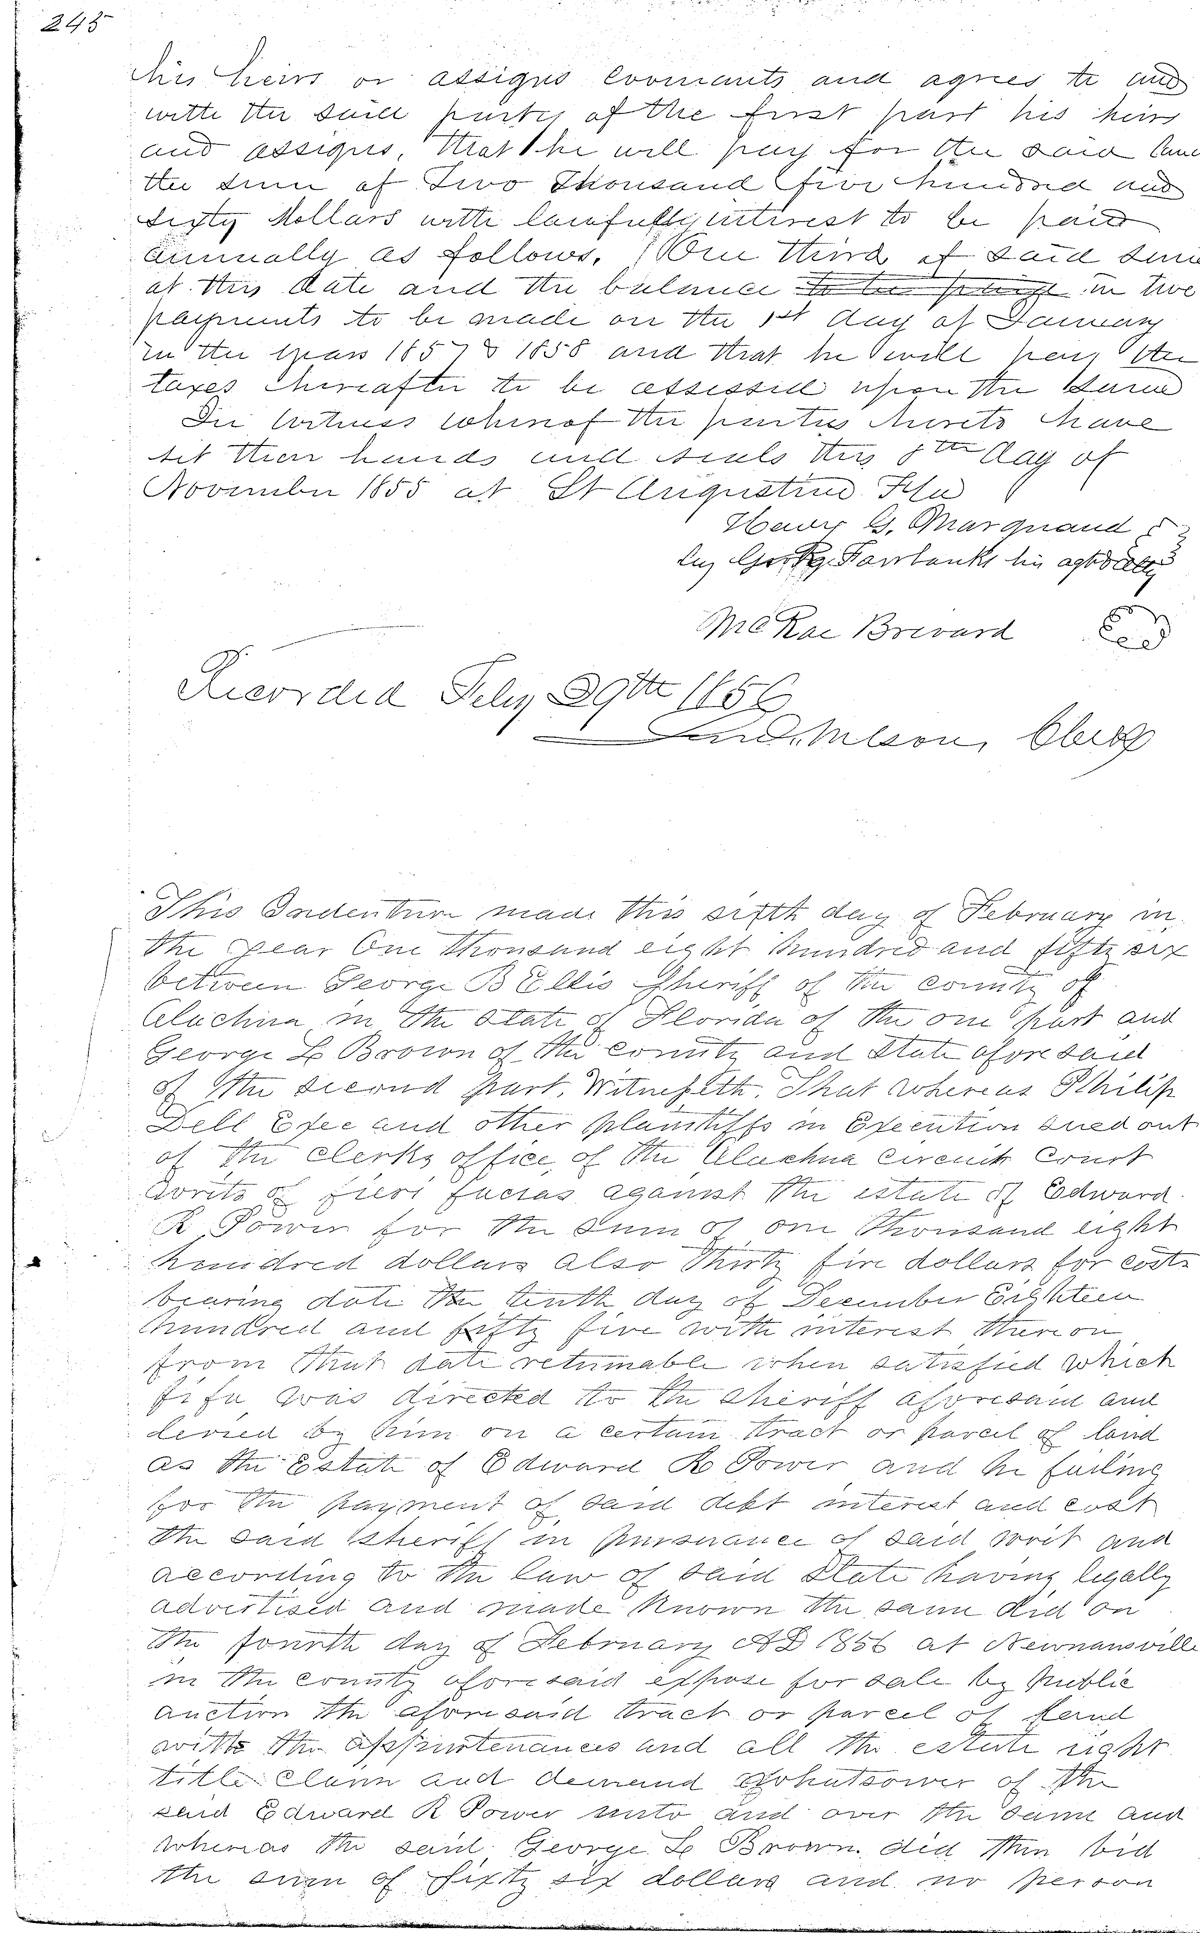 245
his heirs or assigns covenants and agrees to and
with the said party of the first part his heirs
and assigns, that he will pay for the said land
the sum of Two Thousand five hundred and
sixty Dollars with lawfully interest to be paid
annually as follows. One third of said sum
at this date and the balance to be paid in two
payments to be made on the 1st day of January
in the years 1857 & 1858 and that he will pay the
taxes hereafter to be assessed upon the same
In witness whereof the parties hereto have
set their hands and seals this 8th day of
November 1855 at St Augustine Fla
Henry G. Marquand
by Geo R Fairbanks his agt & atty
McRae Brevard
Recorded Feby 29th 1856
Wilson, Clerk
This Indenture made this sixth day of February in
the year One thousand eight hundred and fifty six
between George B Ellis Sheriff of the county of
Alachua in the State of Florida of the one part and
George L Brown of the county and State aforesaid
of the second part, Witnesseth. That whereas Philip
Dell Exec and other plaintiffs in Execution sued out
of the clerks office, of the Alachua circuit court
writs of fieri facias against the estate of Edward
R Power for the sum of one thousand eight
hundred dollars also thirty five dollars for costs
bearing date the tenth day of December Eighteen
hundred and fifty five with interest thereon
from that date returnable when satisfied which
fi fa was directed to the sheriff aforesaid and
levied by him on a certain tract or parcel of land
as the Estate of Edward R Power and he failing
for the payment of said debt interest and cost
the said sheriff in pursuance of said writ and
according to the law of said State having legally
advertised and made known the same did on
the fourth day of February AD 1856 at Newnansville
in the county aforesaid expose for sale by public
auction the aforesaid tract or parcel of land
with the appurtenances and all the estate right
title claim and demand whatsower of the
said Edward R Power unto and over the same and
whereas the said George L Brown did then bid
the sum of sixty six dollars and no person